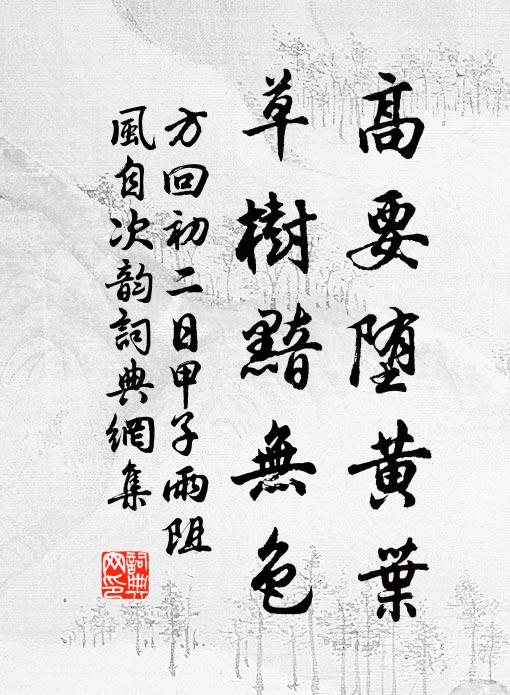 高要堕黄葉
草樹黯無色
方回初二日甲子雨阻
風自次韵詞典網集
詞典网印